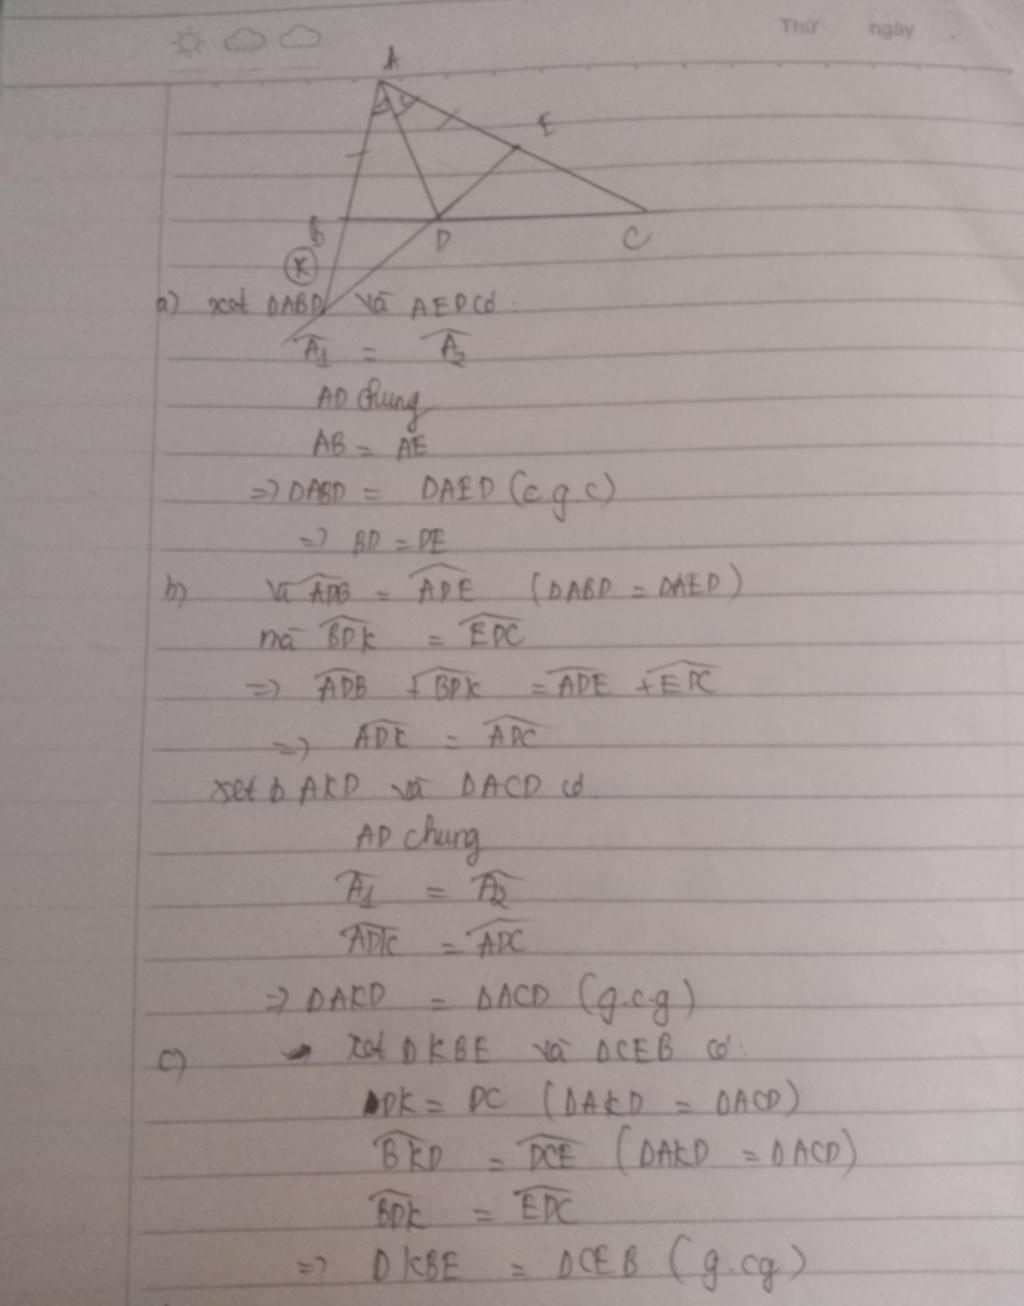 Thứ ngày
A
E
B D C
K
a) xét ΔABD và AED có:
Â1 = Â2
AD chung
AB = AE
=> ΔABD = ΔAED (c.g.c)
=> BD = DE
b) Và ADB = ADE (ΔABD = ΔAED)
mà BDK = EDC
=> ADB + BDK = ADE + EDC
=> ADK = ADC
xét Δ AKD và ΔACD có
AD chung
Â1 = Â2
ADK = ADC
=> ΔAKD = ΔACD (g.c.g)
c) xét ΔKBE và ΔCEB có:
DK = DC (ΔAKD = ΔACD)
BKD = DCE (ΔAKD = ΔACD)
BDK = EDC
=> ΔKBE = ΔCEB (g.cg)